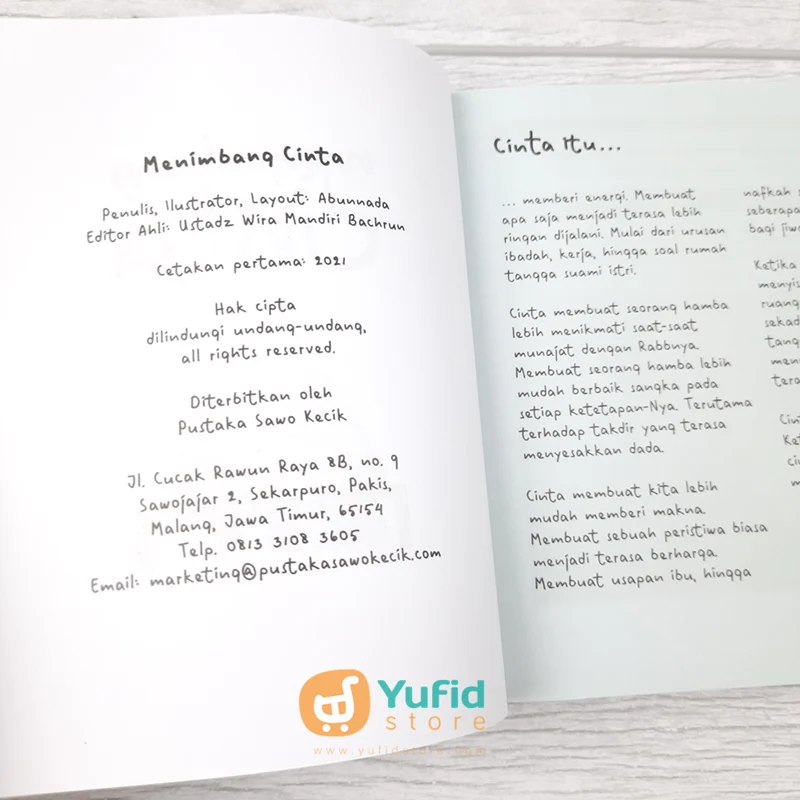 Menimbang Cinta
Penulis, Ilustrator, Layout: Abunnada
Editor Ahli: Ustadz Wira Mandiri Bachrun
Cetakan pertama: 2021
Hak cipta
dilindungi undang-undang,
all rights reserved.
Diterbitkan oleh
Pustaka Sawo Kecik
Jl. Cucak Rawun Raya 8B, no. 9
Sawojajar 2, Sekarpuro, Pakis,
Malang, Jawa Timur, 65154
Telp. 0813 3108 3605
Email: marketing@pustakasawokecik.com
Cinta Itu...
... memberi energi. Membuat
apa saja menjadi terasa lebih
ringan dijalani. Mulai dari urusan
ibadah, kerja, hingga soal rumah
tangga suami istri.
Cinta membuat seorang hamba
lebih menikmati saat-saat
munajat dengan Rabbnya.
Membuat seorang hamba lebih
mudah berbaik sangka pada
setiap ketetapan-Nya. Terutama
terhadap takdir yang terasa
menyesakkan dada.
Cinta membuat kita lebih
mudah memberi makna.
Membuat sebuah peristiwa biasa
menjadi terasa berharga.
Membuat usapan ibu, hingga
nafkah
seberapa
bagi
Ketika
Yufid
store
www.yufidstore.com